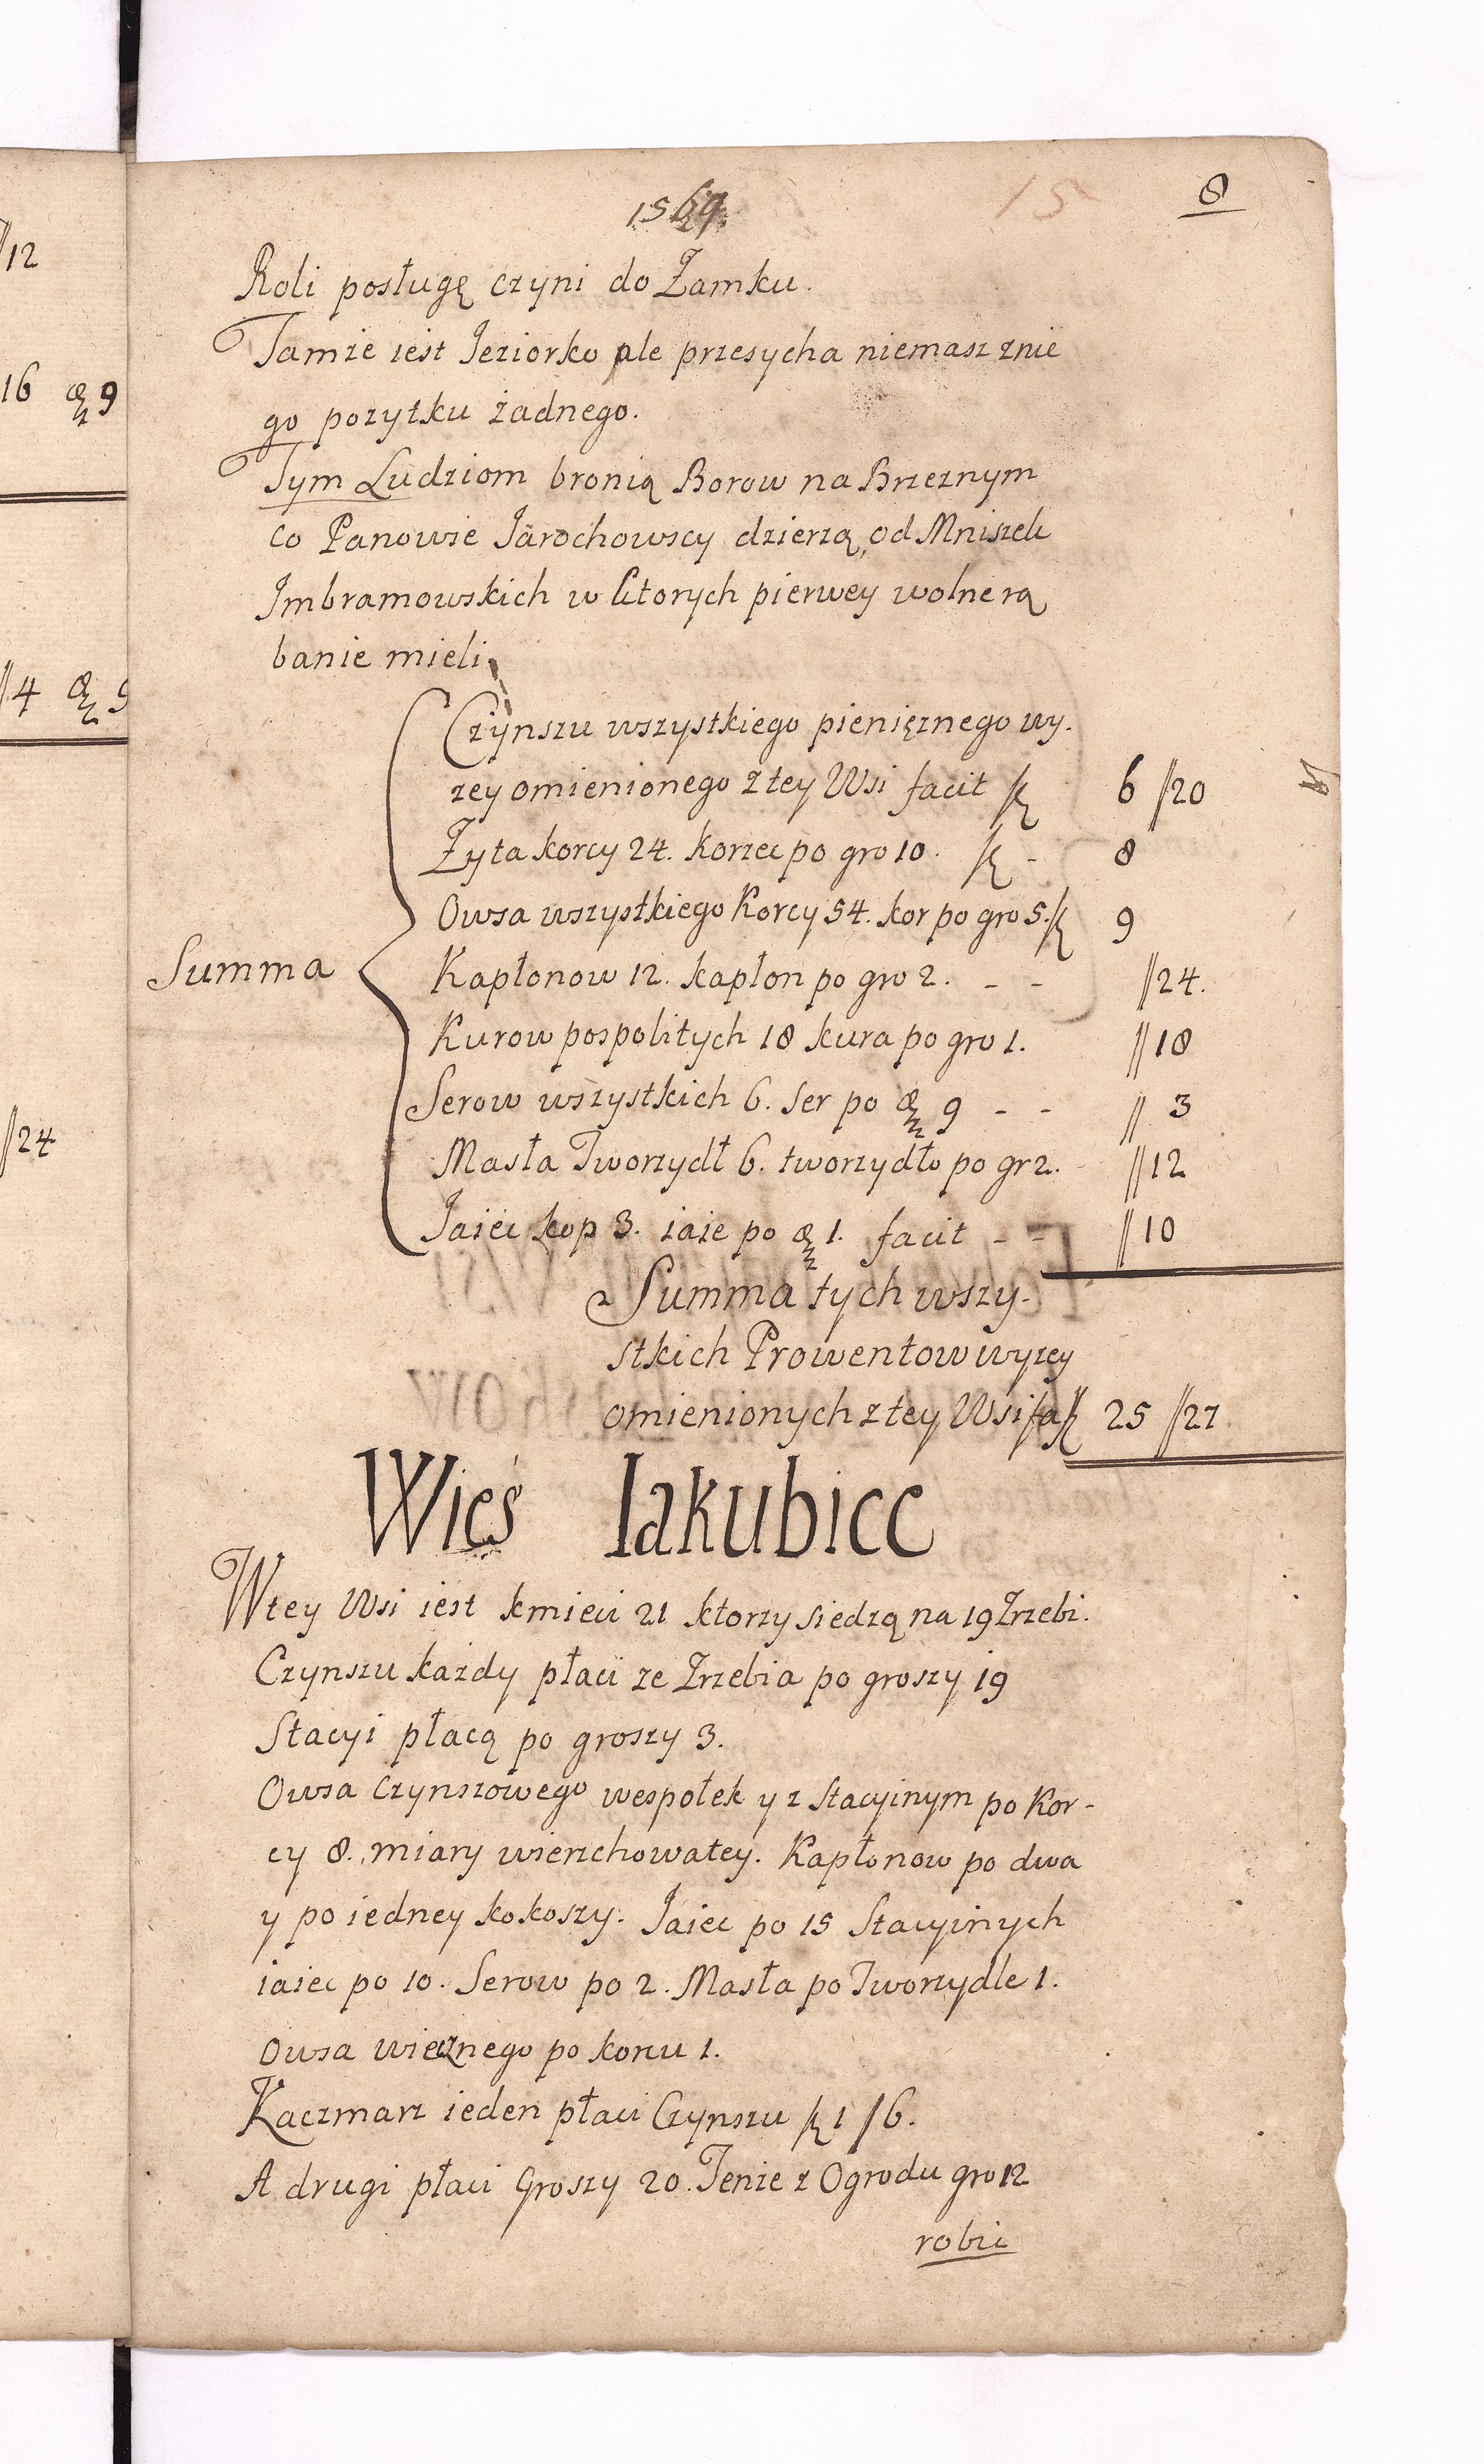 1569
15
8
Roli posługę czyni do Zamku.
Tamze iest Jeziorko ale przesycha niemasz znie
go pozytku żadnego.
Tym Ludziom bronią Borow na Brzeznym
co Panowie Jarochowscy dzierzą, od Mniszek
Imbramowskich w ktorych pierwey wolne rą
banie mieli.
Czynszu wszystkiego pienięznego wy.
zey omienionego z tey Wsi facit 6 //20
Zyta korcy 24. korzec po gro 10. - 8
Owsa wszystkiego Korcy 54. kor po gro 5. 9
Summa
Kapłonow 12. kapłon po gro 2. - - //24.
Kurow pospolitych 18 kura po gro 1. //18
Serow wszystkich 6. Ser po 9 - - // 3
Masła Tworzydł 6. tworzydło po gr 2. //12
Jaiec kop 3. iaie po 1. facit - - //10
Summa tych wszy-
stkich Prowentow wyzey
omienionych z tey Wsi fa 25 //27
Wieś Iakubice
W tey Wsi iest kmieci 21 ktorzy siedzą na 19 Zrzebi.
Czynszu każdy płaci ze Zrzebia po groszy 19
Stacyi płacą po groszy 3.
Owsa czynszowego wespołek y z Stacyinym po Kor-
cy 8. miary wierzchowatey. Kapłonow po dwa
y po iedney kokoszy. Jaiec po 15 Stacyinych
iaiec po 10. Serow po 2. Masła po Tworzydle 1.
Owsa wiecznego po korcu 1.
Kaczmarz ieden płaci Czynszu 1 /6.
A drugi płaci Groszy 20. Tenze z Ogrodu gro 12
robic
//12
16 9
//4 9
//24